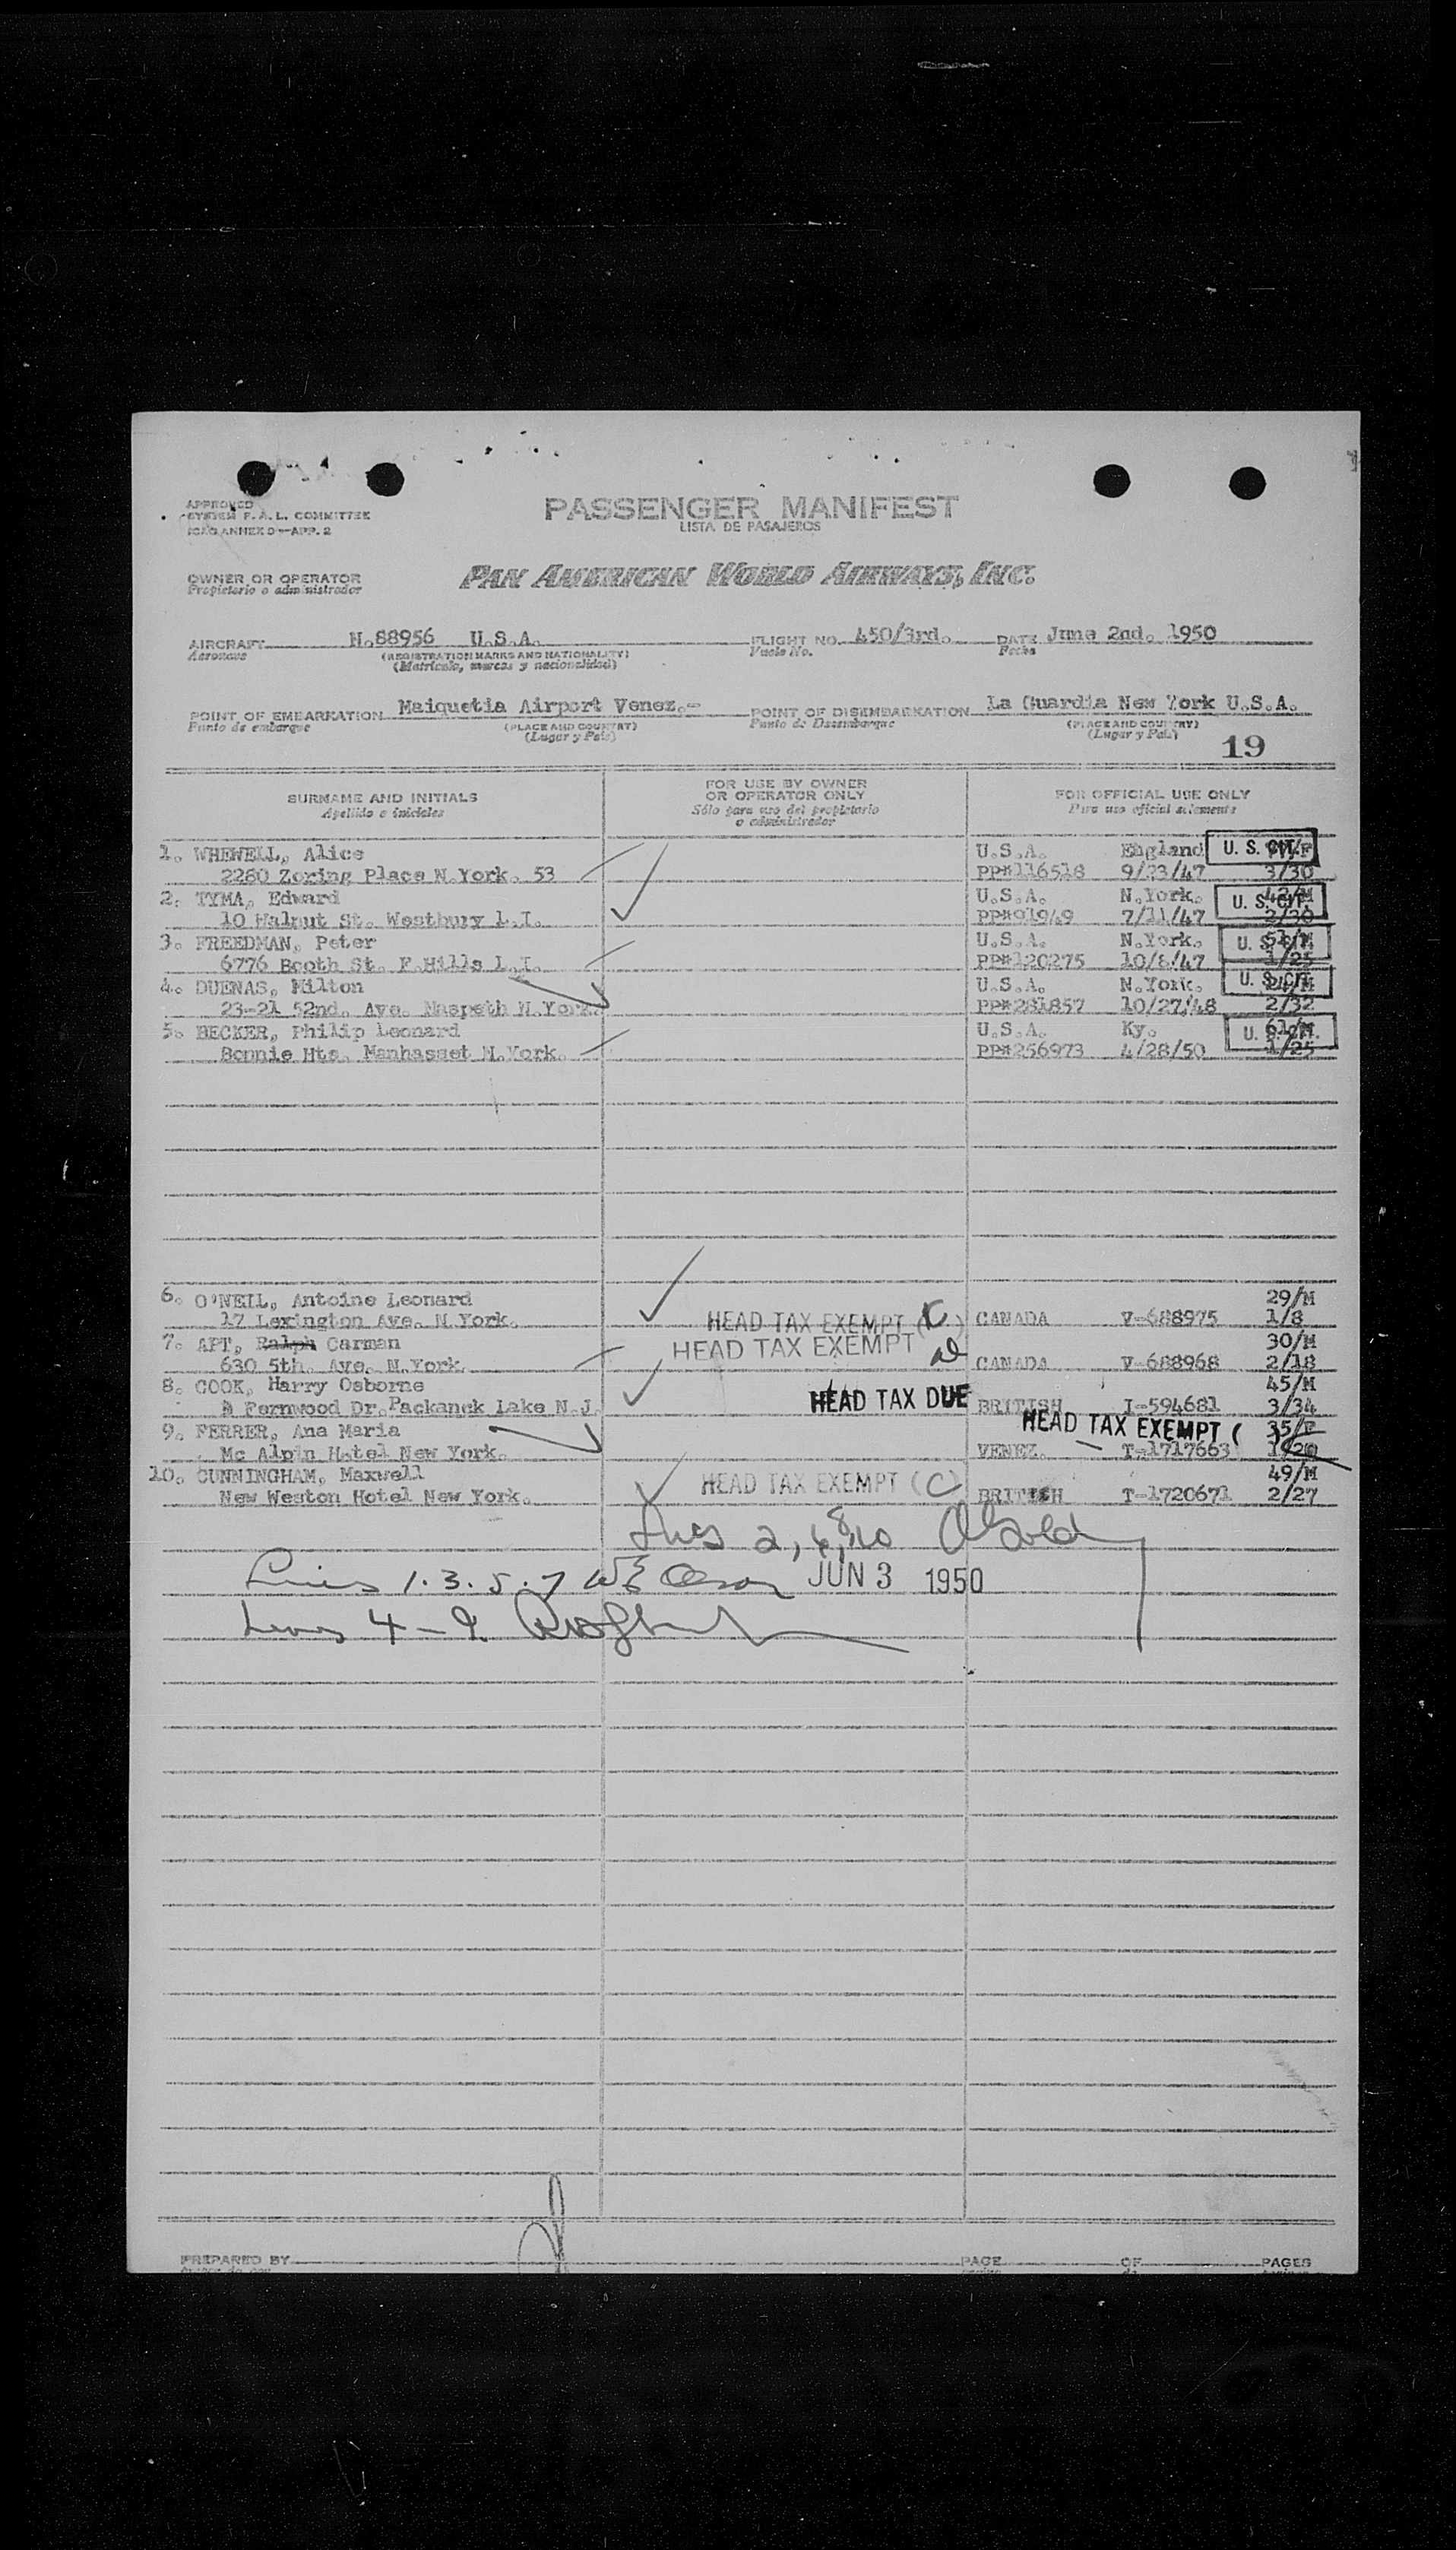 APPROVED
SYSTEM F.A.L. COMMITTEE
ICAO ANNEX 9—APP. 2
PASSENGER MANIFEST
LISTA DE PASAJEROS
OWNER OR OPERATOR
Propietario o administrador
PAN AMERICAN WORLD AIRWAYS, INC.
AIRCRAFT N.88956 U.S.A. FLIGHT NO. 450/3rd. DATE June 2nd. 1950
Aeronave (REGISTRATION MARKS AND NATIONALITY) Vuelo No. Fecha
(Matrícula, marcas y nacionalidad)
POINT OF EMBARKATION Maiquetia Airport Venez.- POINT OF DISEMBARKATION La Guardia New York U.S.A.
Punto de embarque (PLACE AND COUNTRY) Punto de Desembarque (PLACE AND COUNTRY)
(Lugar y País) (Lugar y País)
19
SURNAME AND INITIALS
Apellido e iniciales
FOR USE BY OWNER
OR OPERATOR ONLY
Sólo para uso del propietario
o administrador
FOR OFFICIAL USE ONLY
Para uso oficial solamente
1. WHEWELL, Alice U.S.A. England U. S. CIT.
2280 Zoring Place N.York. 53 PP#116518 9/23/47 3/30
2. TYMA, Edward U.S.A. N.York. 42/M U. S. CIT.
10 Walnut St. Westbury L.I. PP#91949 7/11/47 2/30
3. FREEDMAN, Peter U.S.A. N.York. 51/M U. S. CIT.
6776 Booth St. F.Hills L.I. PP#120275 10/8/47 1/25
4. DUENAS, Milton U.S.A. N.York. U. S. CIT.
23-21 52nd. Ave. Maspeth N.York. PP#281857 10/27/48 2/32
5. BECKER, Philip Leonard U.S.A. Ky. 61/M U. S. CIT.
Bonnie Hts. Manhasset N.York. PP#256973 4/28/50 1/25
6. O'NEIL, Antoine Leonard 29/M
17 Lexington Ave. N.York. HEAD TAX EXEMPT (C) CANADA V-688975 1/8
7. APT, Ralph Carman HEAD TAX EXEMPT 30/M
630 5th. Ave. N.York. CANADA V-688968 2/18
8. COOK, Harry Osborne 45/M
Fernwood Dr. Packanack Lake N.J. HEAD TAX DUE BRITISH I-594681 3/34
9. FERRER, Ana Maria HEAD TAX EXEMPT ( 35/F
Mc Alpin Hotel New York. VENEZ. T-1717663
10. CUNNINGHAM, Maxwell HEAD TAX EXEMPT (C) 49/M
New Weston Hotel New York. BRITISH T-1720671 2/27
2, 6, 8, 10
Lines 1. 3. 5. 7 JUN 3 1950
Lines 4 - 9
PREPARED BY PAGE OF PAGES